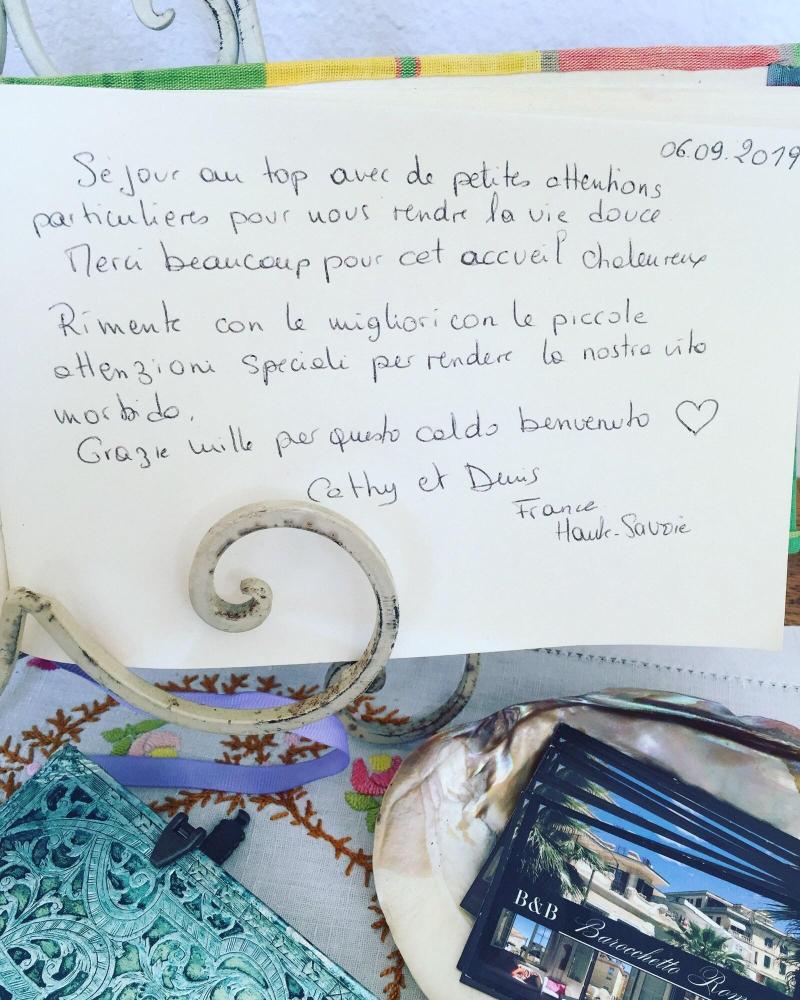 06.09.2019
Séjour au top avec de petites attentions
particulieres pour nous rendre la vie douce
Merci beaucoup pour cet accueil chaleureux
Rimente con le migliori con le piccole
attenzioni speciali per rendere la nostra vita
morbida.
Grazie mille per questo caldo benvenuto
Cathy et Denis
France
Haute-Savoie
B&B
Barocchetto